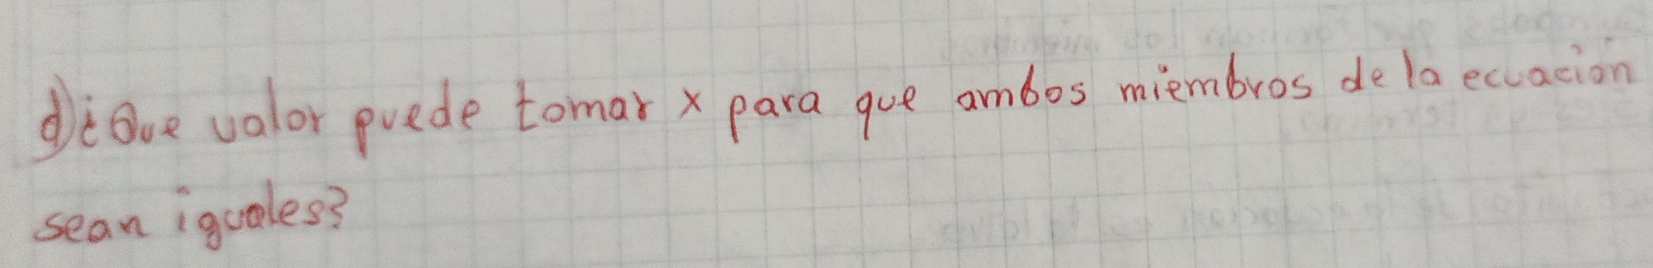 d) ¿Que valor puede tomar x para que ambos miembros de la ecuación
sean iguales?